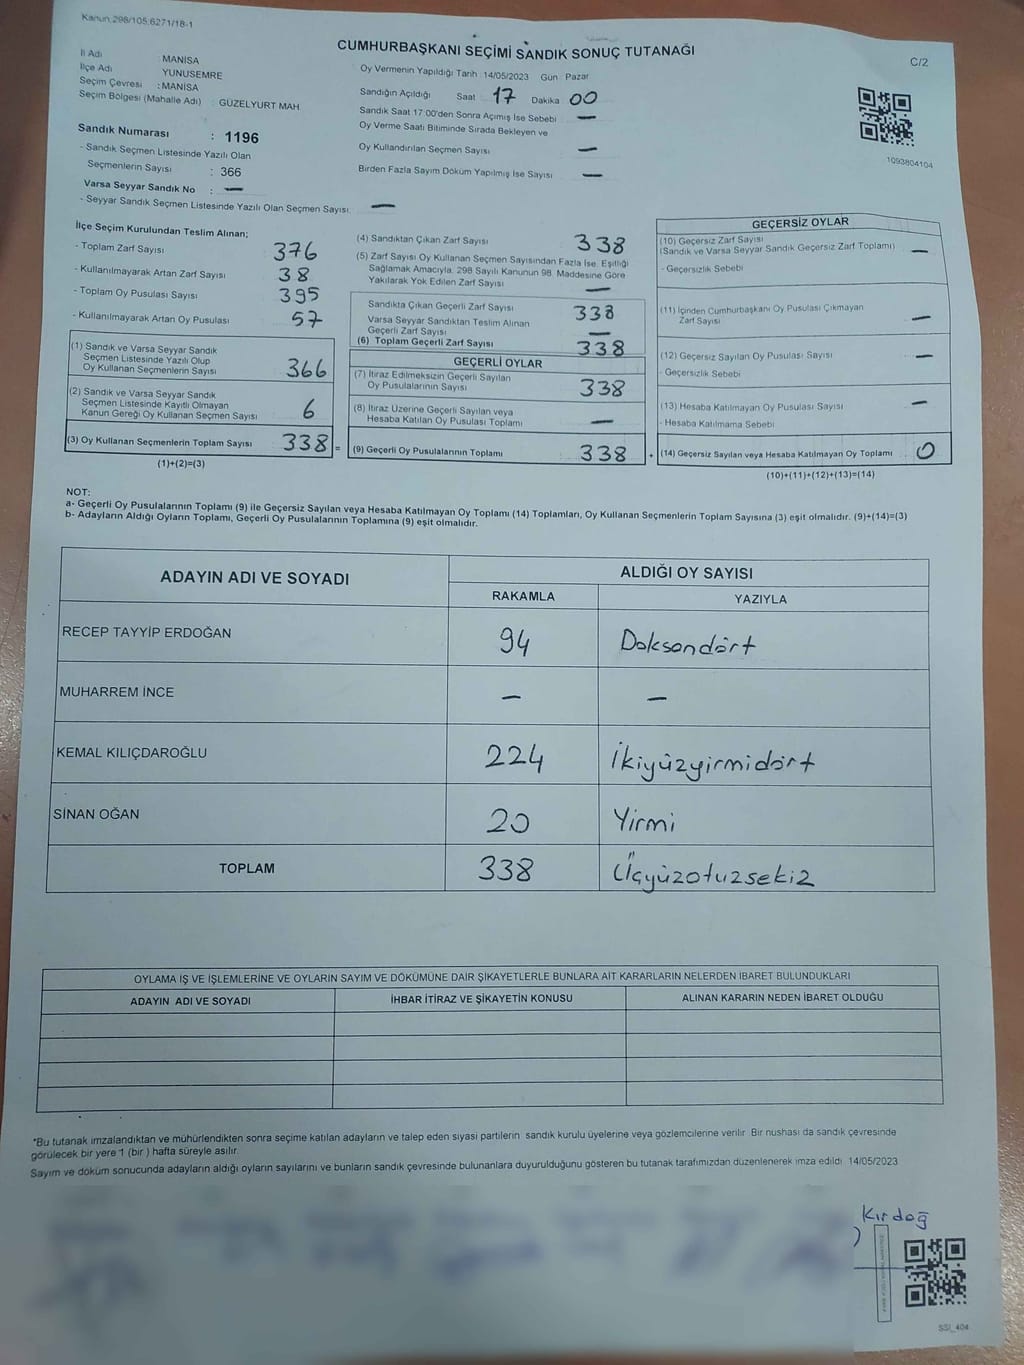 Kanun 298/105,6271/18-1
CUMHURBAŞKANI SEÇİMİ SANDIK SONUÇ TUTANAĞI
C/2
İl Adı : MANİSA
İlçe Adı YUNUSEMRE
Seçim Çevresi : MANİSA
Seçim Bölgesi (Mahalle Adı) : GÜZELYURT MAH
Sandık Numarası : 1196
- Sandık Seçmen Listesinde Yazılı Olan
Seçmenlerin Sayısı : 366
Varsa Seyyar Sandık No : —
- Seyyar Sandık Seçmen Listesinde Yazılı Olan Seçmen Sayısı: —
Oy Vermenin Yapıldığı Tarih 14/05/2023 Gün Pazar
Sandığın Açıldığı Saat 17 Dakika 00
Sandık Saat 17:00'den Sonra Açımış İse Sebebi —
Oy Verme Saati Bitiminde Sırada Bekleyen ve
Oy Kullandırılan Seçmen Sayısı —
Birden Fazla Sayım Döküm Yapılmış İse Sayısı —
1093804104
İlçe Seçim Kurulundan Teslim Alınan;
- Toplam Zarf Sayısı 376
- Kullanılmayarak Artan Zarf Sayısı 38
- Toplam Oy Pusulası Sayısı 395
- Kullanılmayarak Artan Oy Pusulası 57
(1) Sandık ve Varsa Seyyar Sandık
Seçmen Listesinde Yazılı Olup
Oy Kullanan Seçmenlerin Sayısı 366
(2) Sandık ve Varsa Seyyar Sandık
Seçmen Listesinde Kayıtlı Olmayan
Kanun Gereği Oy Kullanan Seçmen Sayısı 6
(3) Oy Kullanan Seçmenlerin Toplam Sayısı 338 =
(1)+(2)=(3)
(4) Sandıktan Çıkan Zarf Sayısı 338
(5) Zarf Sayısı Oy Kullanan Seçmen Sayısından Fazla İse, Eşitliği
Sağlamak Amacıyla, 298 Sayılı Kanunun 98. Maddesine Göre
Yakılarak Yok Edilen Zarf Sayısı —
Sandıkta Çıkan Geçerli Zarf Sayısı 338
Varsa Seyyar Sandıktan Teslim Alınan
Geçerli Zarf Sayısı —
(6) Toplam Geçerli Zarf Sayısı 338
GEÇERLİ OYLAR
(7) İtiraz Edilmeksizin Geçerli Sayılan
Oy Pusulalarının Sayısı 338
(8) İtiraz Üzerine Geçerli Sayılan veya
Hesaba Katılan Oy Pusulası Toplamı —
(9) Geçerli Oy Pusulalarının Toplamı : 338 +
GEÇERSİZ OYLAR
(10) Geçersiz Zarf Sayısı
(Sandık ve Varsa Seyyar Sandık Geçersiz Zarf Toplamı) —
- Geçersizlik Sebebi
(11) İçinden Cumhurbaşkanı Oy Pusulası Çıkmayan
Zarf Sayısı —
(12) Geçersiz Sayılan Oy Pusulası Sayısı —
- Geçersizlik Sebebi
(13) Hesaba Katılmayan Oy Pusulası Sayısı —
- Hesaba Katılmama Sebebi
(14) Geçersiz Sayılan veya Hesaba Katılmayan Oy Toplamı 0
(10)+(11)+(12)+(13)=(14)
NOT:
a- Geçerli Oy Pusulalarının Toplamı (9) ile Geçersiz Sayılan veya Hesaba Katılmayan Oy Toplamı (14) Toplamları, Oy Kullanan Seçmenlerin Toplam Sayısına (3) eşit olmalıdır. (9)+(14)=(3)
b- Adayların Aldığı Oyların Toplamı, Geçerli Oy Pusulalarının Toplamına (9) eşit olmalıdır.
ADAYIN ADI VE SOYADI ALDIĞI OY SAYISI
RAKAMLA YAZIYLA
RECEP TAYYİP ERDOĞAN 94 Doksandört
MUHARREM İNCE — —
KEMAL KILIÇDAROĞLU 224 İkiyüzyirmidört
SİNAN OĞAN 20 Yirmi
TOPLAM 338 Üçyüzotuzsekiz
OYLAMA İŞ VE İŞLEMLERİNE VE OYLARIN SAYIM VE DÖKÜMÜNE DAİR ŞİKAYETLERLE BUNLARA AİT KARARLARIN NELERDEN İBARET BULUNDUKLARI
ADAYIN ADI VE SOYADI İHBAR İTİRAZ VE ŞİKAYETİN KONUSU ALINAN KARARIN NEDEN İBARET OLDUĞU
*Bu tutanak imzalandıktan ve mühürlendikten sonra seçime katılan adayların ve talep eden siyasi partilerin sandık kurulu üyelerine veya gözlemcilerine verilir. Bir nushası da sandık çevresinde
görülecek bir yere 1 (bir ) hafta süreyle asılır.
Sayım ve döküm sonucunda adayların aldığı oyların sayılarını ve bunların sandık çevresinde bulunanlara duyurulduğunu gösteren bu tutanak tarafımızdan düzenlenerek imza edildi 14/05/2023
Kırdoğ
SSI_404